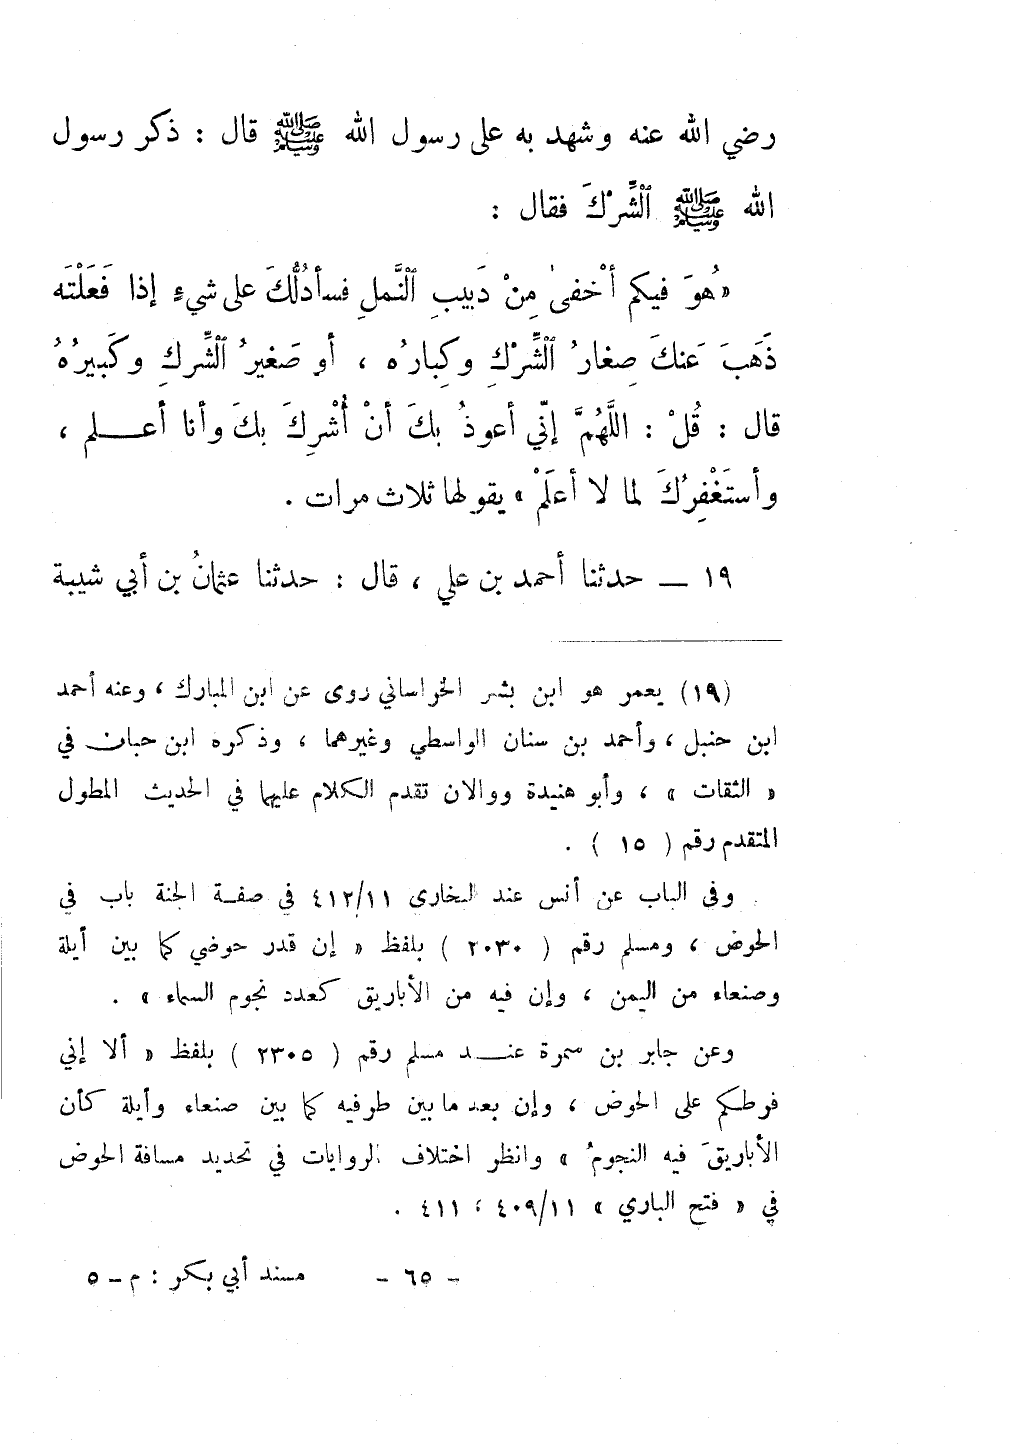 رضي الله عنه وشهد به على رسول الله ﷺ قال : ذكر رسول
الله ﷺ ٱلشِّرْكَ فقال :
« هُوَ فيكم أخْفىٰ مِنْ دَبيبِ ٱلنَّملِ فسأدُلُّكَ على شيءٍ إذا فَعَلْتَه
ذَهَبَ عَنكَ صِغارُ ٱلشِّرْكِ وكِبارُه ، أو صَغيرُ ٱلشِّركِ وكَبيرُهُ
قال : قُلْ : اللَّهُمَّ إنّي أعوذُ بكَ أنْ أُشْرِكَ بكَ وأنا أعــلم ،
وأستَغْفِرُكَ لما لا أعلَمْ » يقولها ثلاث مرات .
١٩ — حدثنا أحمد بن علي ، قال : حدثنا عثمانُ بن أبي شيبة
(١٩) يعمر هو ابن بشر الخراساني روى عن ابن المبارك ، وعنه أحمد
ابن حنبل ، وأحمد بن سنان الواسطي وغيرهما ، وذكره ابن حبان في
« الثقات » ، وأبو هنيدة ووالان تقدم الكلام عليهما في الحديث المطول
المتقدم رقم ( ١٥ ) .
وفي الباب عن أنس عند البخاري ٤١٢/١١ في صفة الجنة باب في
الحوض ، ومسلم رقم ( ٢٠٣٠ ) بلفظ « إن قدر حوضي كما بين أيلة
وصنعاء من اليمن ، وإن فيه من الأباريق كعدد نجوم السماء » .
وعن جابر بن سمرة عنــد مسلم رقم ( ٢٣٠٥ ) بلفظ « ألا إني
فرطكم على الحوض ، وإن بعد ما بين طرفيه كما بين صنعاء وأيلة كأن
الأباريقَ فيه النجومُ » وانظر اختلاف الروايات في تحديد مسافة الحوض
في « فتح الباري » ٤٠٩/١١ ، ٤١١ .
- ٦٥ - مسند أبي بكر : م - ٥